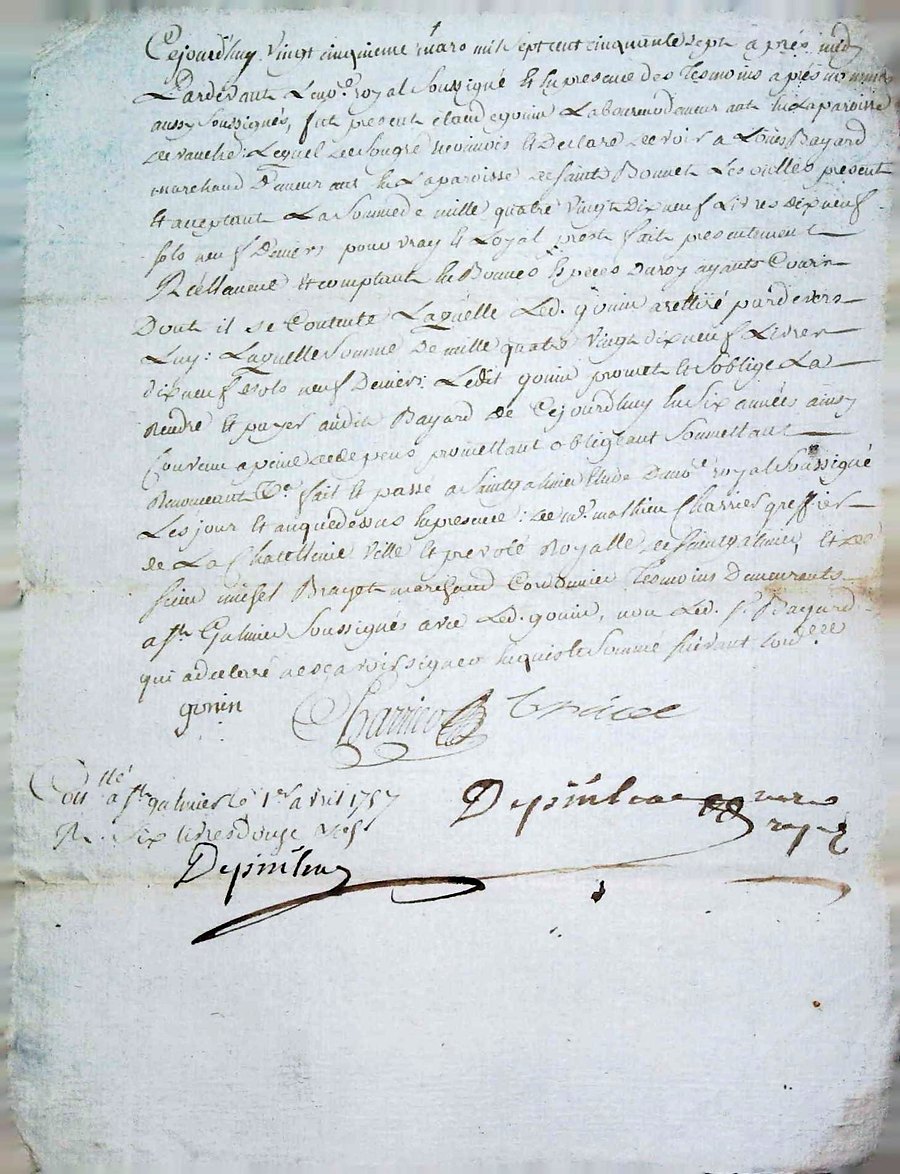 Cejourdhuy vingt cinquieme mars mil sept cent cinquante sept après midy
Pardevant Le no.re royal Soussigné Et En presence des Tesmoins après nommés
aussy Soussignés, fut present Claude gonin Laboureur demeurant En La paroisse
de Lequel de Son gré reconnois Et declare devoir a Louis Bayard
marchand Demeurant En La paroisse de Saint Bonnet Les oulles present
Et aceptant La Somme de mille quatre vingt Dix neuf Livres Dix neuf
sols neuf Deniers pour vray Et Loyal prest fait presentement
Réellement Et comptant En Bonnes Espèces du roy ayants Cours
Dont il se Contente Laquelle Led. gonin a rettiré pardevers
Luy: Laquelle Somme De mille quatre vingt dix neuf Livres
dix neuf Sols neuf Deniers: Ledit gonin promet Et Soblige La
rendre Et payer audit Bayard de Cejourdhuy En Six années ainsy
Convenu a peine de depens promettant obligeant Soumettant
Renonceant &.a fait Et passé a Saint galmier Etude Du no.re royal Soussigné
Les jour Et an que dessus En presence: de m.e mathieu Charrier greffier
de La Chatellenie ville Et prevoté Royalle de Saint galmier, Et de
Sieur michel marchand Cordonnier Tesmoins Demeurants
a St. Galmier Soussignés avec Led. gonin, non Led. Sr. Bayard
qui a declaré ne sçavoir signer Enquis Et Sommé Suivant Lord.ce
gonin Charrier
Con.llé a St. galmier Le 1er avril 1757
R. Six livres douze sols